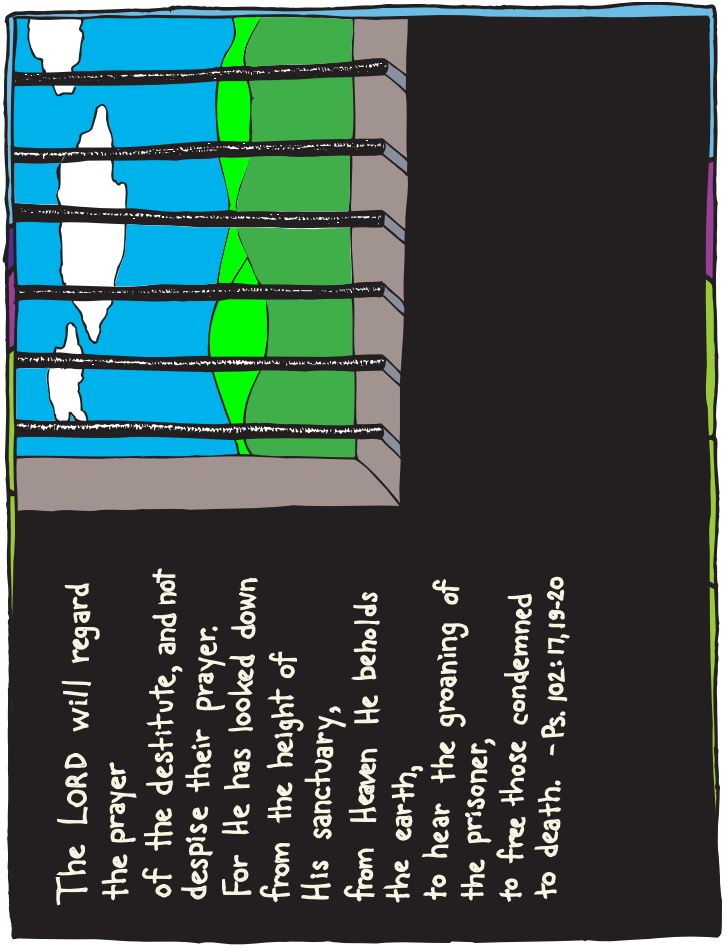 The LORD will regard
the prayer
of the destitute, and not
despise their prayer.
For He has looked down
from the height of
His sanctuary,
from Heaven He beholds
the earth,
to hear the groaning of
the prisoner,
to free those condemned
to death. -Ps. 102:17,19-20